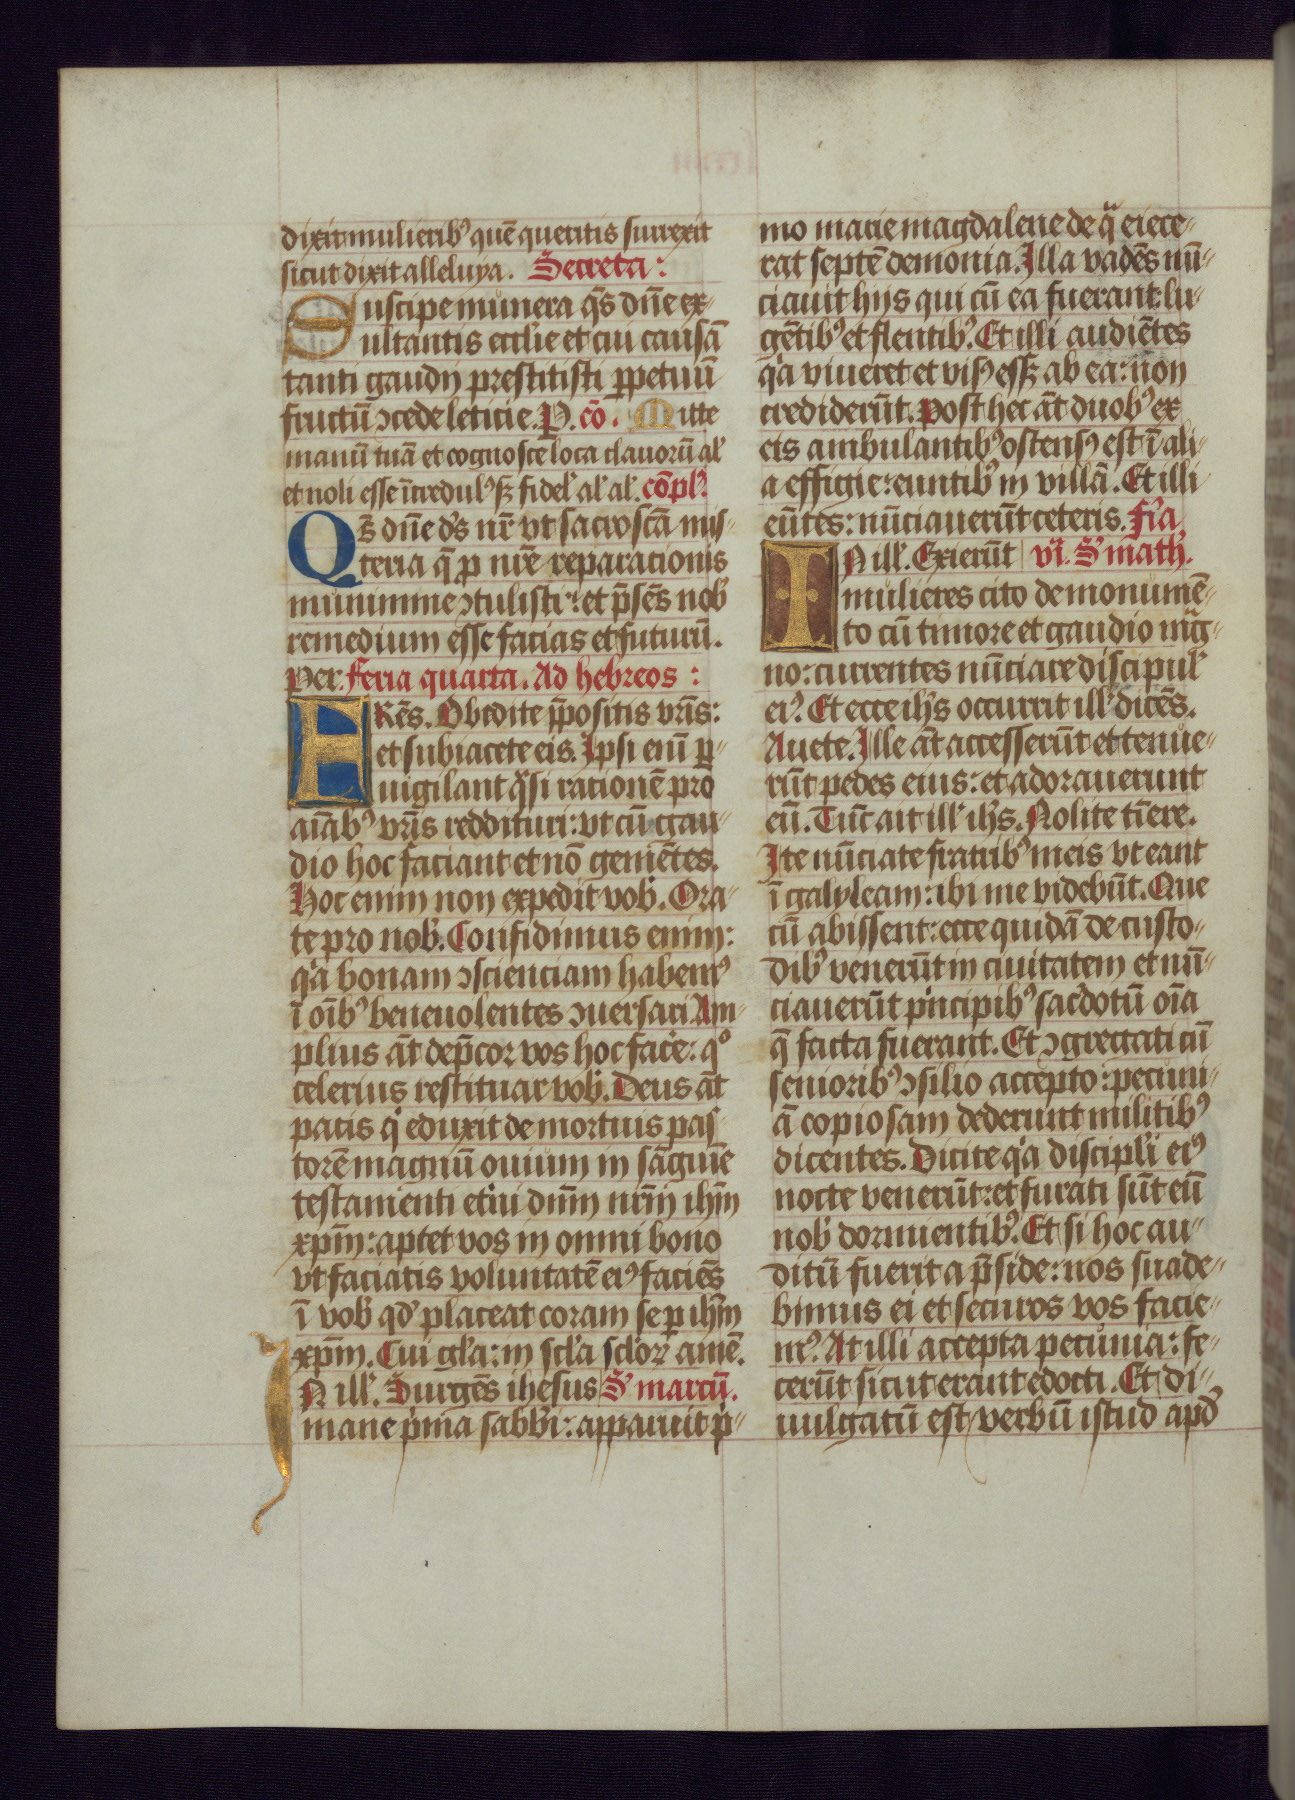 dixit mulierib⁹ quē queritis surrexit
sicut dixit alleluya. Secreta:
Suscipe munera q̄s dn̄e ex-
ultantis eccl'ie et cui causā
tanti gaudij prestitisti ꝑpetuū
fructū ꝯcede leticie. P. cō. Mitte
manū tuā et cognosce loca clauorū al'
et noli esse īcredul⁹ sꝫ fidel' al' al'. cōpl'.
Qs̄ dn̄e d's nr̄ vt sacrosc̄ā mis-
teria q̄ ꝓ nr̄e reparacionis
munimine ꝯtulisti: et p̄sēs nob'
remedium esse facias et futurū.
Per. feria quarta. Ad hebreos:
FRēs. Obedite p̄positis vr̄is:
et subiacete eis. Ipsi enī ꝑ-
uigilant q̊si racionē pro
aīab⁹ vr̄is reddituri: vt cū gau-
dio hoc faciant et nō gemētes.
Hoc enim non expedit vob'. Ora-
te pro nob'. Confidimus enim:
q'a bonam ꝯscienciam habem⁹
ī oīb⁹ beneuolentes ꝯuersari Am-
plius āt dep̄cor vos hoc fac'e: q°
celerius restituar vob'. Deus āt
pacis q' eduxit de mortuis pas-
torē magnū ouium in sāguīe
testamenti et'ni dnm̄ nrm̄ ihm̄
xpm̄: aptet vos in omni bono
vt faciatis voluntatē ei⁹ faciēs
ī vob' qd' placeat coram se ꝑ ihm̄
xpm̄. Cui gl'a: in scl'a scl'oꝝ amē.
IN ill'. Surgēs ihesus S' marcū.
mane p'ma sabb'i: apparuit p'-
mo marie magdalene de q̊ eiece-
rat septē demonia. Illa vadēs nū-
ciauit hijs qui cū ea fuerant: lu-
gētib⁹ et flentib⁹. Et illi audiētes
q'a viueret et vis⁹ essꝫ ab ea: non
crediderūt. Post hec āt duob⁹ ex
eis ambulantib⁹ ostens⁹ est ī ali-
a effigie: euntib⁹ in villā. Et illi
eūtes: nūciauerūt ceteris. F'ia
IN ill'. Exierūt vi. S' math'.
mulieres cito de monumē-
to cū timore et gaudio mag-
no: currentes nūciare discipul'
ei⁹. Et ecce ih's occurrit ill' dicēs.
Auete. Ille āt accesserūt et tenue-
rūt pedes eius: et adorauerunt
eū. Tūc ait ill' ih's. Nolite tīere.
Ite nūciate fratrib⁹ meis vt eant
ī galyleam: ibi me videbūt. Que
cū abissent: ecce quidā de custo-
dib⁹ venerūt in ciuitatem et nū-
ciauerūt p'ncipib⁹ sac'dotū oīa
q̄ facta fuerant. Et ꝯgregati cū
seniorib⁹ ꝯsilio accepto: pecuni-
ā copiosam dederunt militib⁹
dicentes. Dicite q'a discipl'i ei⁹
nocte venerūt: et furati sūt eū
nob' dormientib⁹. Et si hoc au-
ditū fuerit a p̄side: nos suade-
bimus ei et securos vos facie-
m⁹. At illi accepta pecunia: fe-
cerūt sicut erant edocti. Et di-
uulgatū est verbū istud apd'